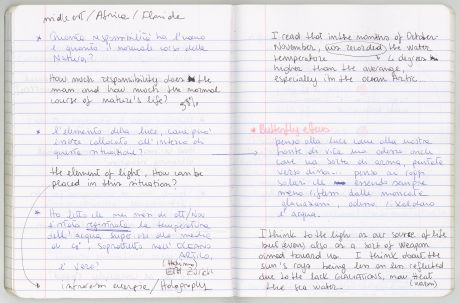 nidi ott / Africa / Elenide
* Quanta responsabilità ha l'uomo
e quanto il normale corso della
Natura?
How much responsibility does the
man and how much the normal
course of nature's life?
* l'elemento della luce, come può
essere collocato all'interno di
questa situazione?
the element of light, How can be
placed in this situation?
* Ho letto che nei mesi di ott/Nov
è stata registrata la temperatura
dell'acqua superiore alla media
di 4°, soprattutto nell'OCEANO
ARTICO,
è vero?
ETH Zürich
I read that in the months of October-
November, (was recorded) the water
temperature 4 degrees
higher than the average,
especially in the ocean Arctic...
* Butterfly effect
penso alla luce come alla nostra
fonte di vita ma adesso anche
come una sorta di arma, puntata
verso di noi... penso ai raggi
solari che essendo sempre
meno riflessi dalle mancate
glaciazioni, adesso riscaldano
l'acqua.
I think to the light as our source of life
but even, also as a sort of weapon
aimed toward us. I think about the
sun's rays being less and less reflected
due to the lack glaciations, now heat
the sea water. (warm)